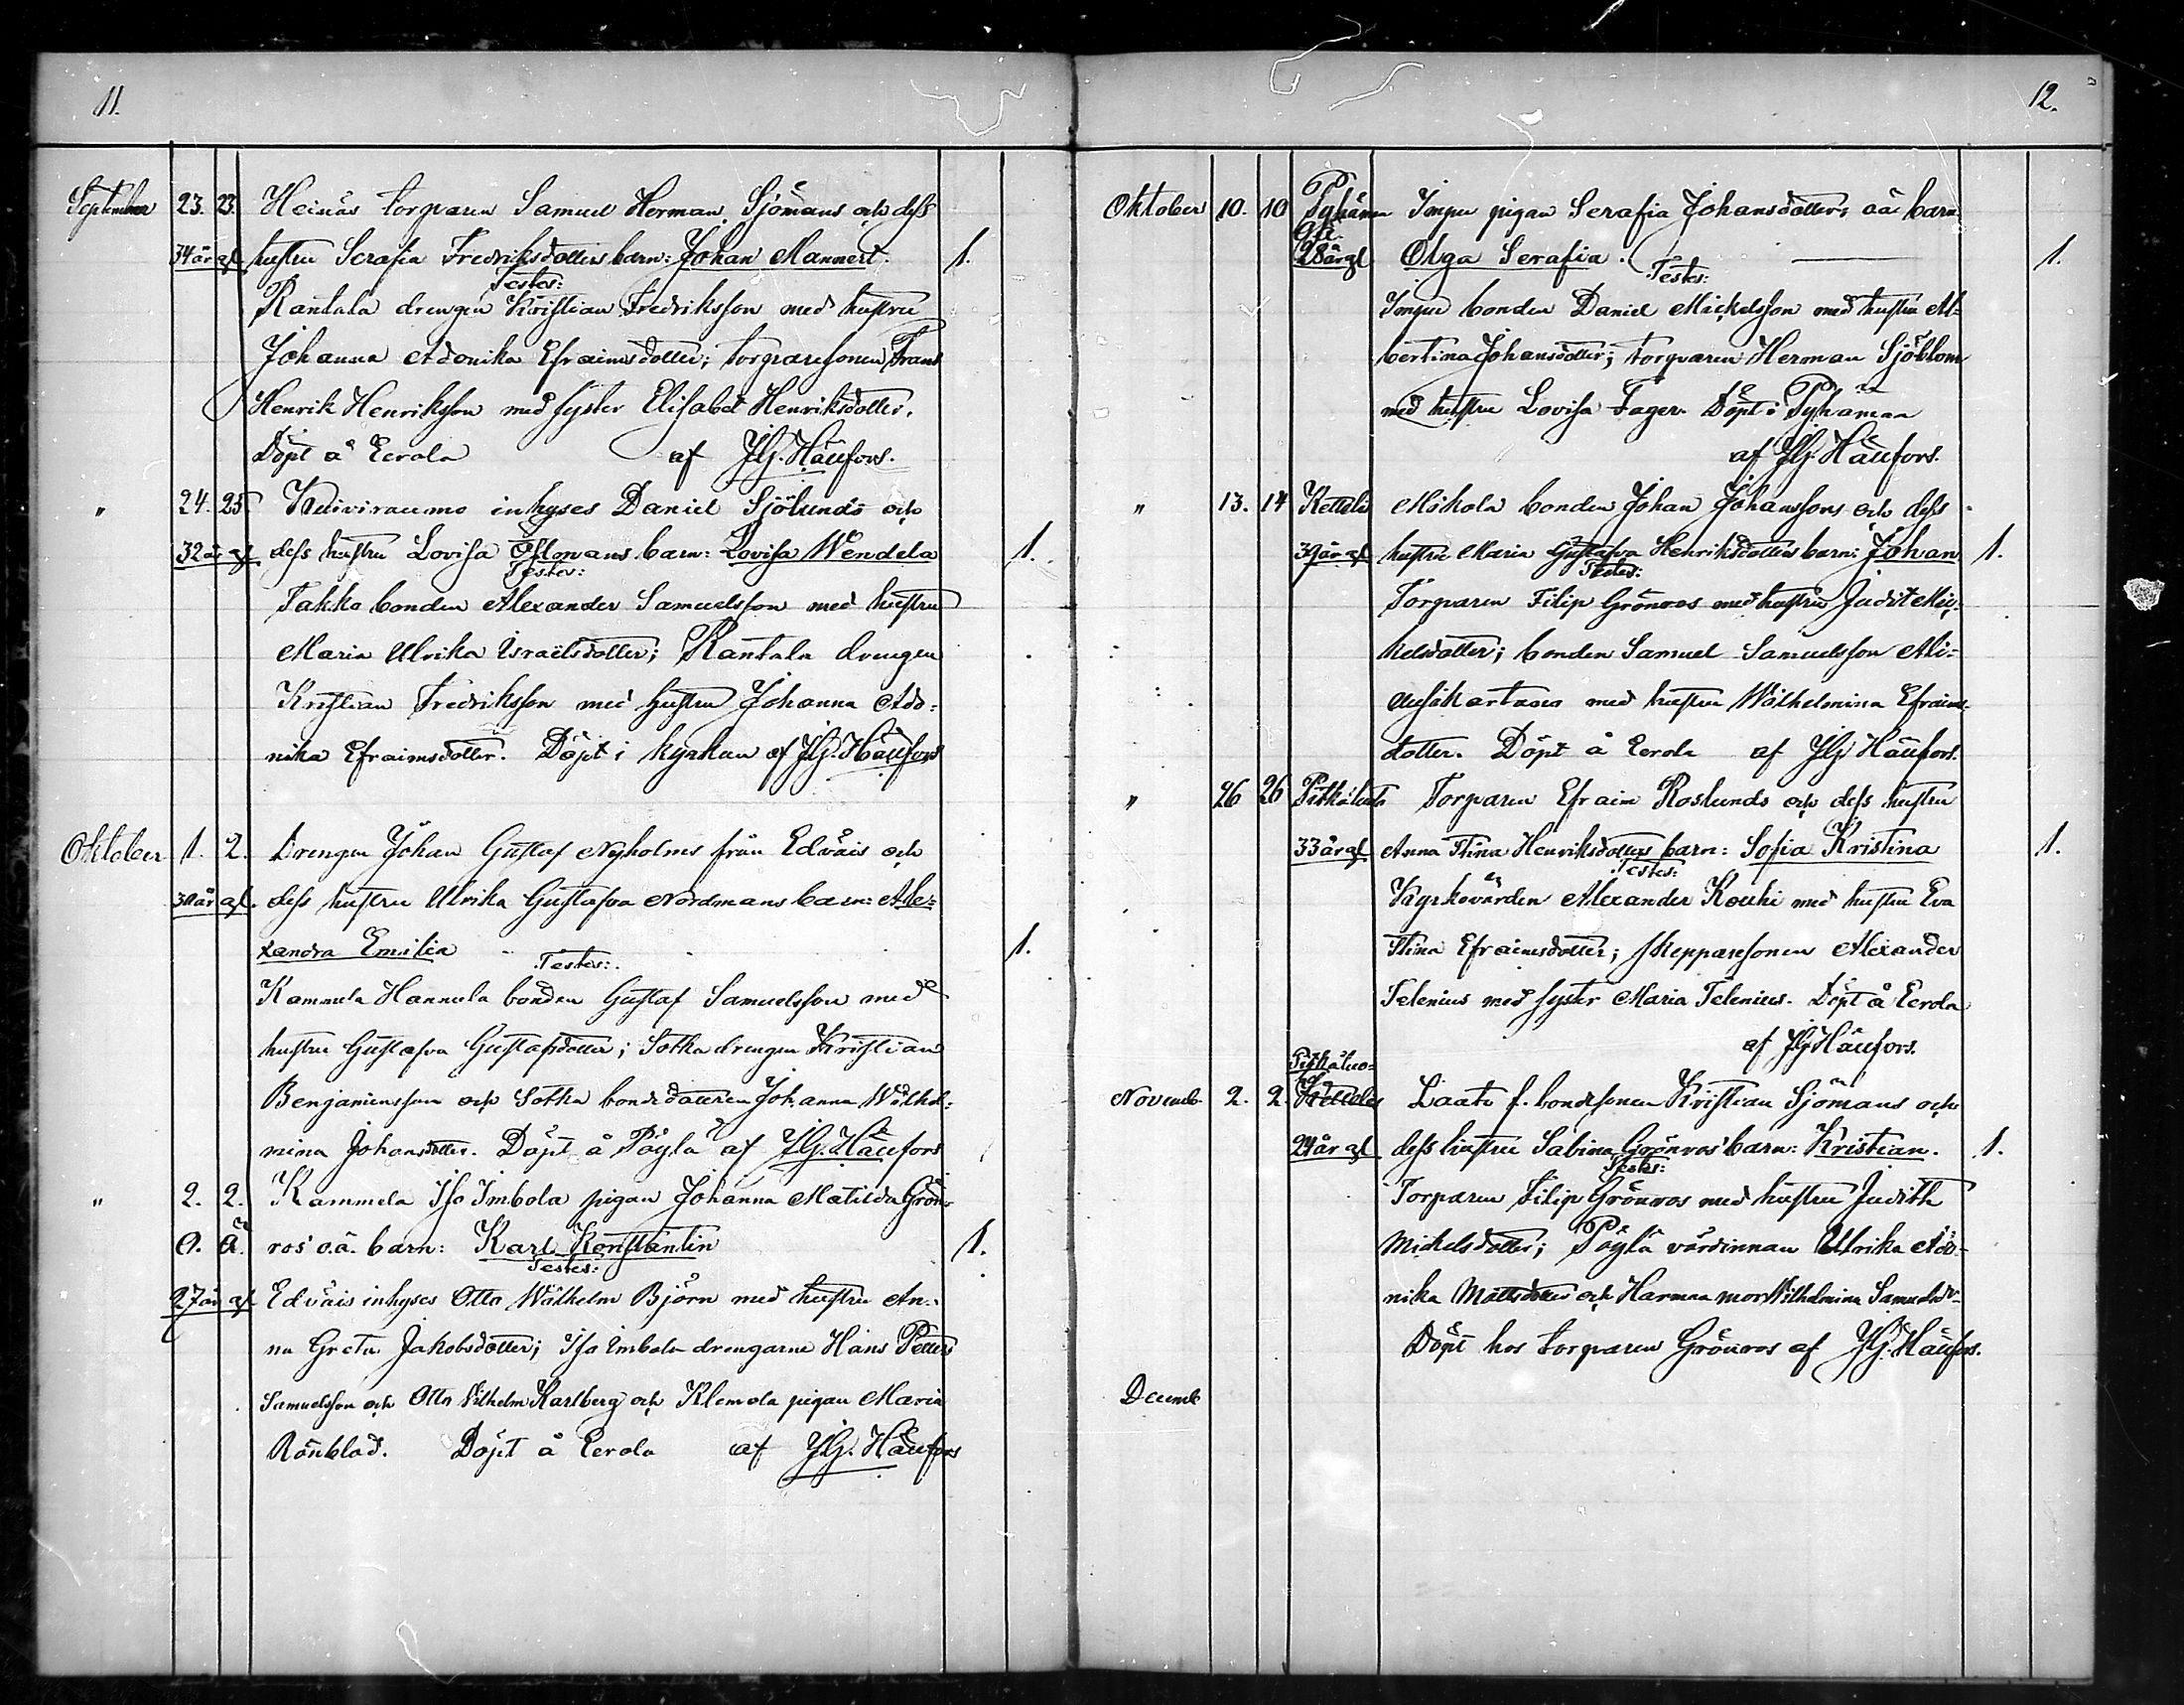 11.
September 23. 23. Heinäs torparen Samuel Herman Sjömans och dess
34 år gl. hustru Serafia Fredriksdotters barn: Johan Mannert. 1.
Testes:
Rantala drengen Kristian Fredriksson med hustru
Johanna Adonika Efraimsdotter; torparesonen Frans
Henrik Henriksson med syster Elisabet Henriksdotter.
Döpt å Eerola af
" 24. 25. inhyses Daniel Sjölunds och
32 år gl. dess hustru Lovisa Östmans barn: Lovisa Wendela 1.
Testes:
Takko bonden Alexander Samuelsson med hustru
Maria Ulrika Israelsdotter; Rantala drengen
Kristian Fredriksson med hustru Johanna Ado-
nika Efraimsdotter. Döpt i kyrkan af
Oktober 1. 2. Drengen Johan Gustaf Nyholms från Edväis och
30 år gl. dess hustru Ulrika Gustafva Nordmans barn: Ale-
xandra Emilia 1.
Testes:
Kammela Hannula bonden Gustaf Samuelsson med
hustru Gustafva Gustafsdotter; Sotka drengen Kristian
Benjaminsson och Sotka bondedottren Johanna Wilhel-
mina Johansdotter. Döpt å Pöylä af
" 2. 2. Kammela Iso Imbola pigan Johanna Matilda Grön-
O. Ä. ros' o.ä. barn: Karl Konstantin 1.
Testes:
27 år gl. Edväis inhyses Otto Wilhelm Björn med hustru An-
na Greta Jakobsdotter; Iso Imbola drengarne Hans Petter
Samuelsson och Otto Vilhelm Karlberg och Klemola pigan Maria
Rönblad. Döpt å Eerola af
12.
Oktober 10. 10 Pyhämaa pigan Serafia Johansdotters oä. barn
28 år gl. Olga Serafia. 1.
Testes:
bonden Daniel Mickelsson med hustru Al-
bertina Johansdotter; torparen Herman Sjöblom
med hustru Lovisa Fager. Döpt i Pyhämaa
af
" 13. 14 Ketteli Mikola bonden Johan Johanssons och dess
39 år gl. hustru Maria Gustafva Henriksdotters barn: Johan 1.
Testes:
Torparen Filip Grönros med hustru Judit Mic-
kelsdotter; bonden Samuel Samuelsson Ali-
med hustru Wilhelmina Efraims-
dotter. Döpt å Eerola af
" 26 26 Torparen Efraim Roslunds och dess hustru
33 år gl. Anna Stina Henriksdotters barn: Sofia Kristina 1.
Testes:
Kyrkovärden Alexander Kouhi med hustru Eva
Stina Efraimsdotter; skepparesonen Alexander
Telenius med syster Maria Telenius. Döpt å Eerola
af
Novemb. 2. 2. Laato f. bondesonen Kristian Sjömans och
24 år gl dess hustru Sabina Grönros' barn: Kristian. 1.
Testes:
Torparen Filip Grönros med hustru Judith
Mickelsdotter; Pöylä värdinnan Ulrika Ado-
nika Mattsdotter och Harmaa mor Wilhelmina Samuelsdr.
Döpt hos torparen Grönros af
Decemb